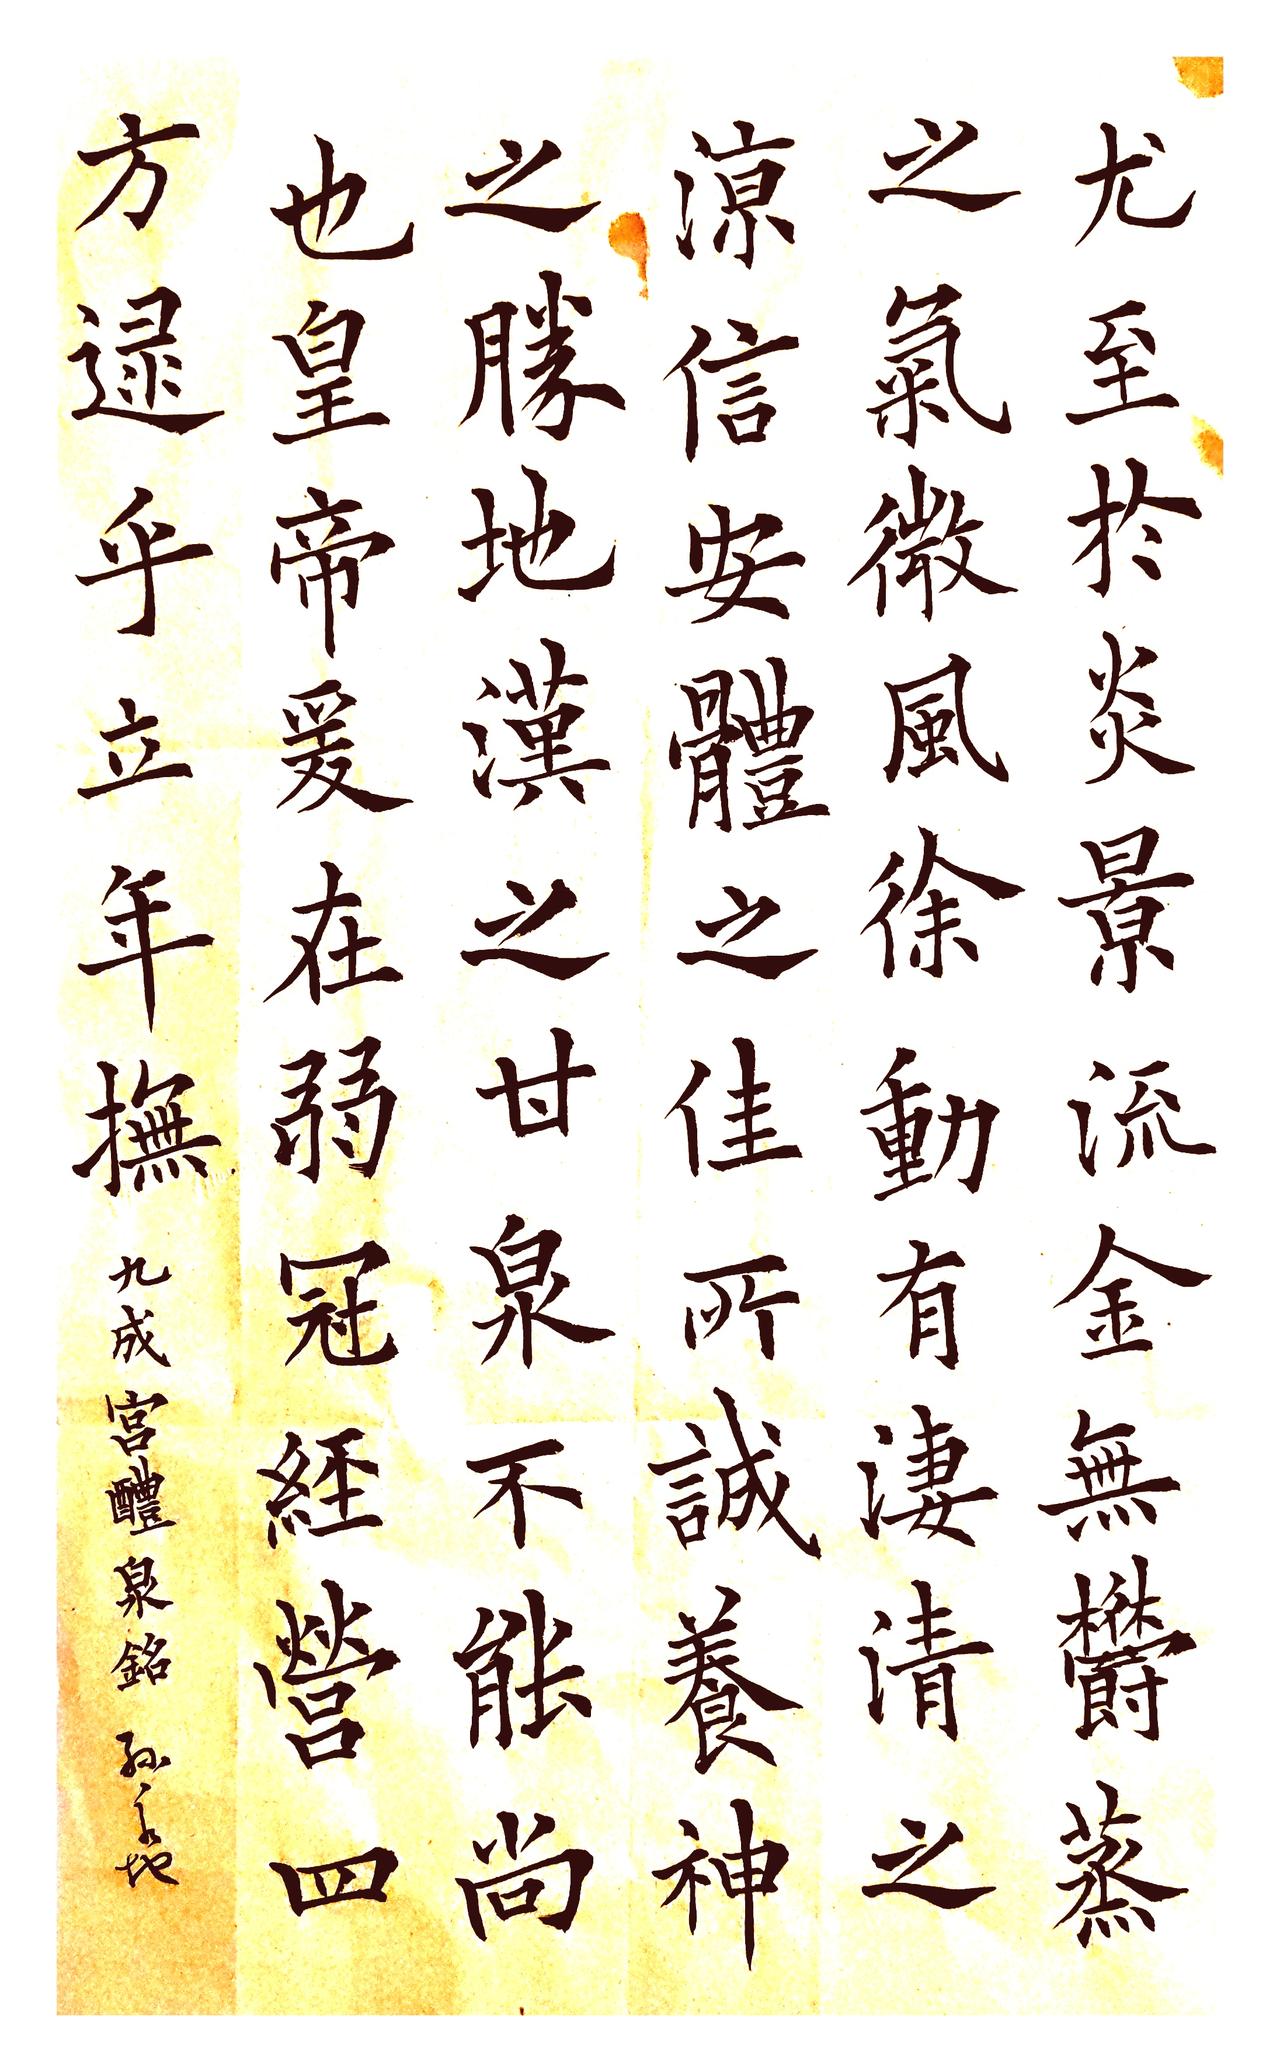 尤至於炎景流金無欝蒸
之氣微風徐動有淒清之
涼信安體之佳所誠養神
之勝地漢之甘泉不能尚
也皇帝爰在弱冠經營四
方逯乎立年撫
九成宮醴泉銘 孫之地